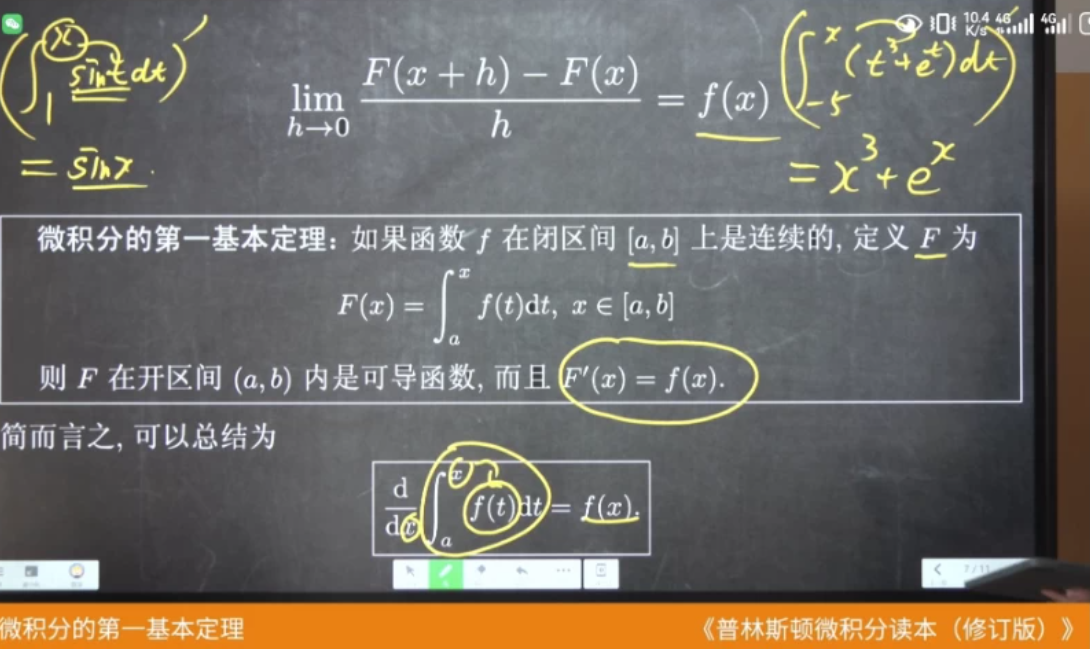 10.4 K/s 4G 4G
(∫₁ˣ sint dt)′
= sinx.
lim h→0 F(x + h) − F(x) / h = f(x)
(∫₋₅ˣ (t³+eᵗ)dt)′
= x³+eˣ
微积分的第一基本定理：如果函数 f 在闭区间 [a, b] 上是连续的, 定义 F 为
F(x) = ∫ₐˣ f(t)dt, x ∈ [a, b]
则 F 在开区间 (a, b) 内是可导函数, 而且 F′(x) = f(x).
简而言之, 可以总结为
d/dx ∫ₐˣ f(t)dt = f(x).
7/11
微积分的第一基本定理
《普林斯顿微积分读本（修订版）》